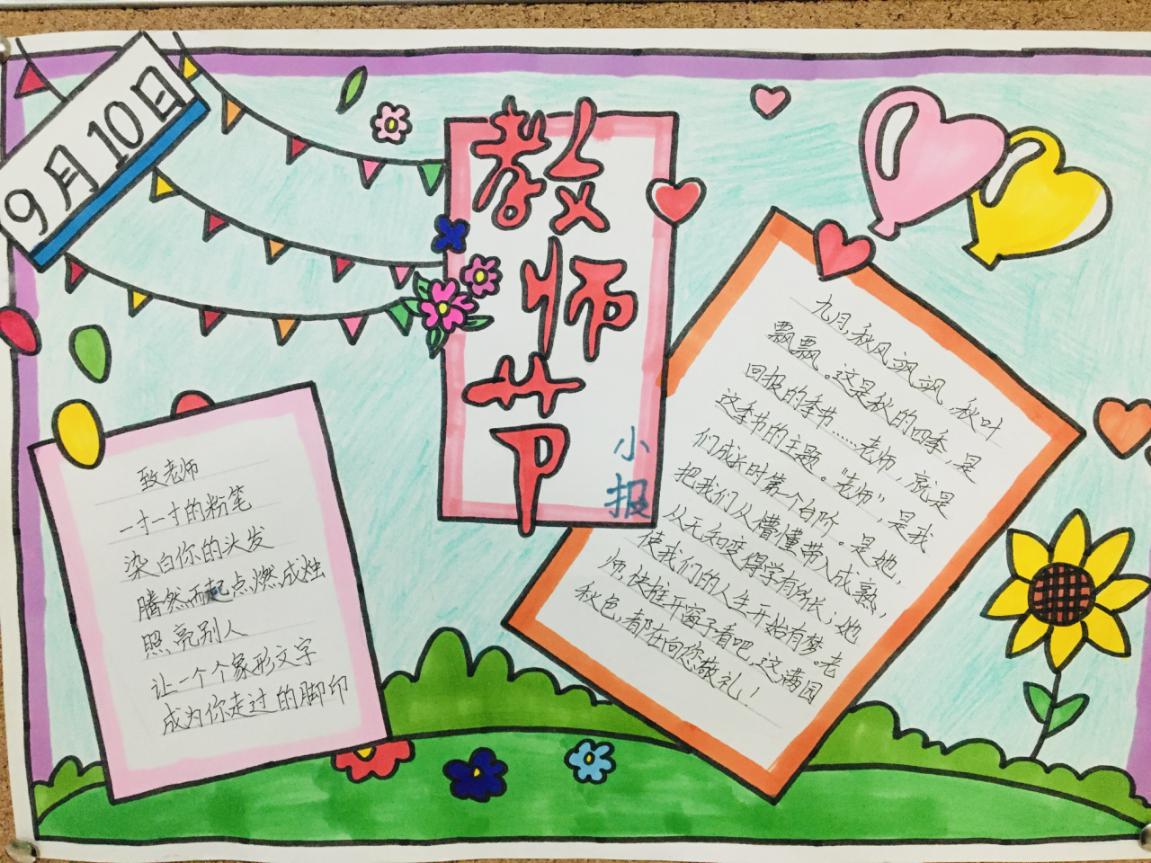 9月10日
教师节
小报
致老师
一寸一寸的粉笔
染白你的头发
腾然而起点燃成烛
照亮别人
让一个个象形文字
成为你走过的脚印
九月,秋风飒飒,秋叶
飘飘。这是秋的四季,是
回报的季节……老师,就是
这季节的主题。"老师",是我
们成长时第一个台阶。是她,
把我们从懵懂带入成熟,
从无知变得学有所长;她
使我们的人生开始有梦。老
师,快推开窗子看吧,这满园
秋色,都在向您敬礼!